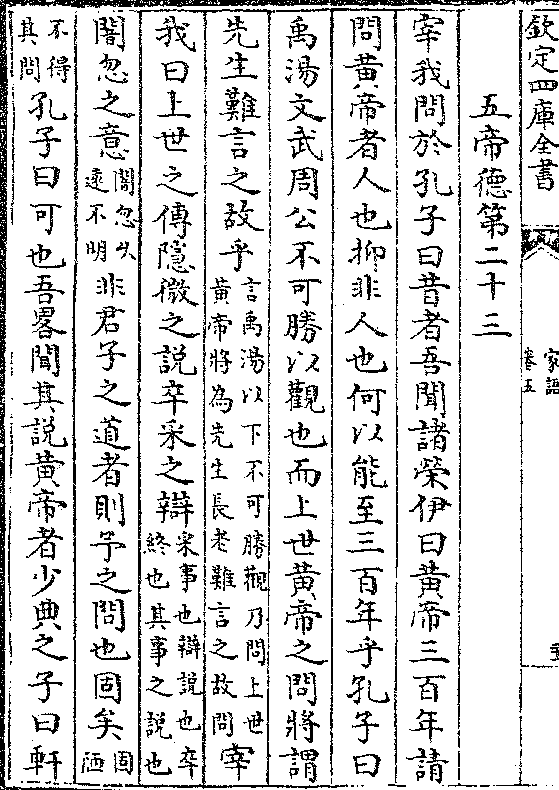 欽定四庫全書
家語
卷五
五帝德第二十三
宰我問於孔子曰昔者吾聞諸榮伊曰黃帝三百年請
問黃帝者人也抑非人也何以能至三百年乎孔子曰
禹湯文武周公不可勝以觀也而上世黃帝之問將謂
先生難言之故乎
言禹湯以下不可勝觀乃問上世
黃帝將為先生長老難言之故問
宰
我曰上世之傳隱微之説卒采之辯
采事也辯説也卒
終也其事之説也
闇忽之意
闇忽久
逺不明
非君子之道者則予之問也固矣
固
陋
不得
其問
孔子曰可也吾畧聞其説黃帝者少典之子曰軒